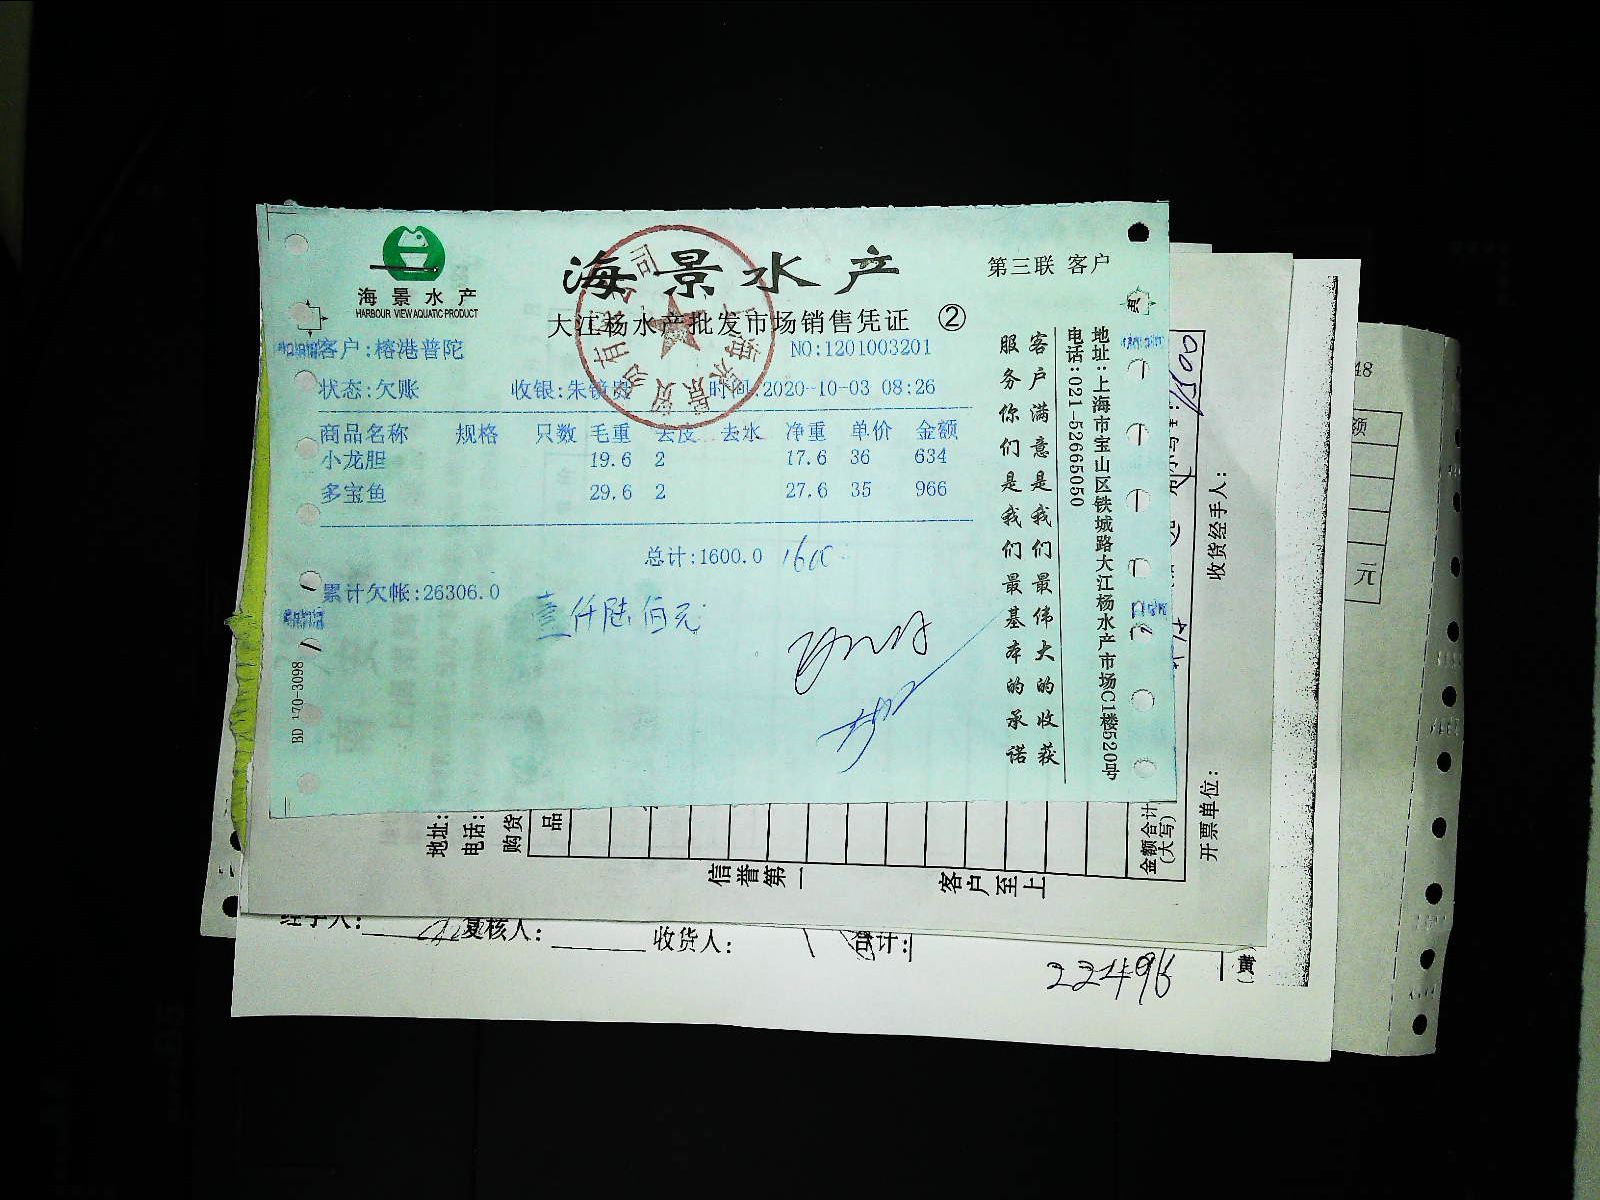 海景水产
HARBOUR VIEW AQUATIC PRODUCT
海景水产
第三联 客户
大江杨水产批发市场销售凭证 ②
客户:榕港普陀 NO:1201003201
状态:欠账 收银:朱镜 时间:2020-10-03 08:26
商品名称 规格 只数 毛重 去皮 去水 净重 单价 金额
小龙胆 19.6 2 17.6 36 634
多宝鱼 29.6 2 27.6 35 966
总计:1600.0 1600
累计欠帐:26306.0
壹仟陆佰元
BD 170-3098
客户满意是我们最伟大的收获
服务你们是我们最基本的承诺
地址:上海市宝山区铁城路大江杨水产市场C1楼520号
电话:021-52665050
地址:
电话:
购货
品
信誉第一
客户至上
金额合计
(大写)
开票单位:
收货经手人:
1500
48
额
元
经手人: 复核人: 收货人: 合计:
22496
黄